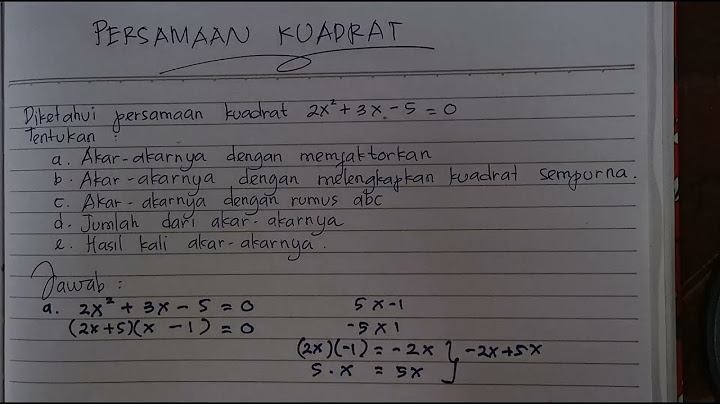 PERSAMAAN KUADRAT
Diketahui persamaan kuadrat 2x² + 3x - 5 = 0
Tentukan :
a. Akar-akarnya dengan memfaktorkan
b. Akar-akarnya dengan melengkapkan kuadrat sempurna.
c. Akar-akarnya dengan rumus abc
d. Jumlah dari akar-akarnya
e. Hasil kali akar-akarnya.
Jawab :
a. 2x² + 3x - 5 = 0 5 x -1
(2x+5)(x - 1) = 0 -5 x 1
(2x)(-1) = -2x } -2x+5x
5 . x = 5x